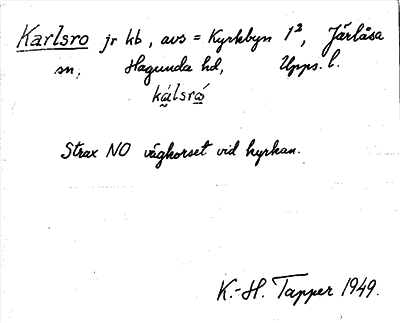 Karlsro jr kb, avs = Kyrkbyn 1², Järlåsa
sn, Hagunda hd, Upps. l.
kálsró
Strax NO vägkorset vid kyrkan.
K.-H. Tapper 1949.